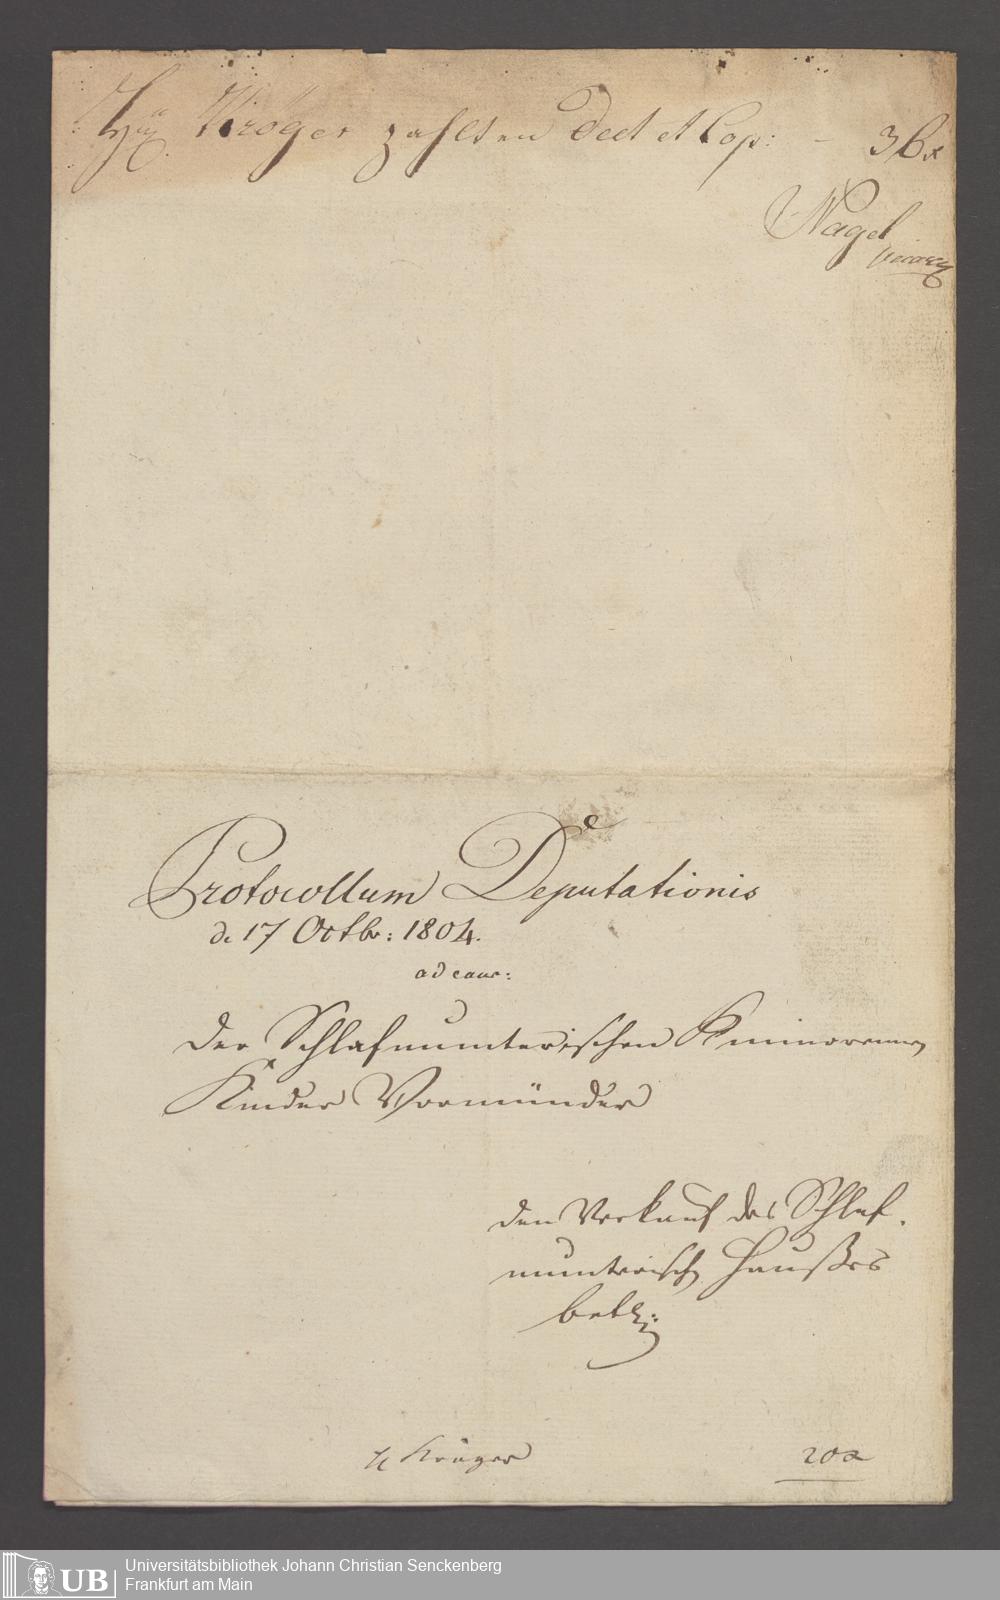 Kröger zahlt en Decl et Cop: – 36 x
Nagel
Protocollum Deputationis
de 17 Octbr: 1804.
ad caus:
der Schlafmunterischen minorennen
Kinder Vormünder
den Verkauf des Schlaf-
munterisch Haußes
betr:
Kröger
202
UB
Universitätsbibliothek Johann Christian Senckenberg
Frankfurt am Main